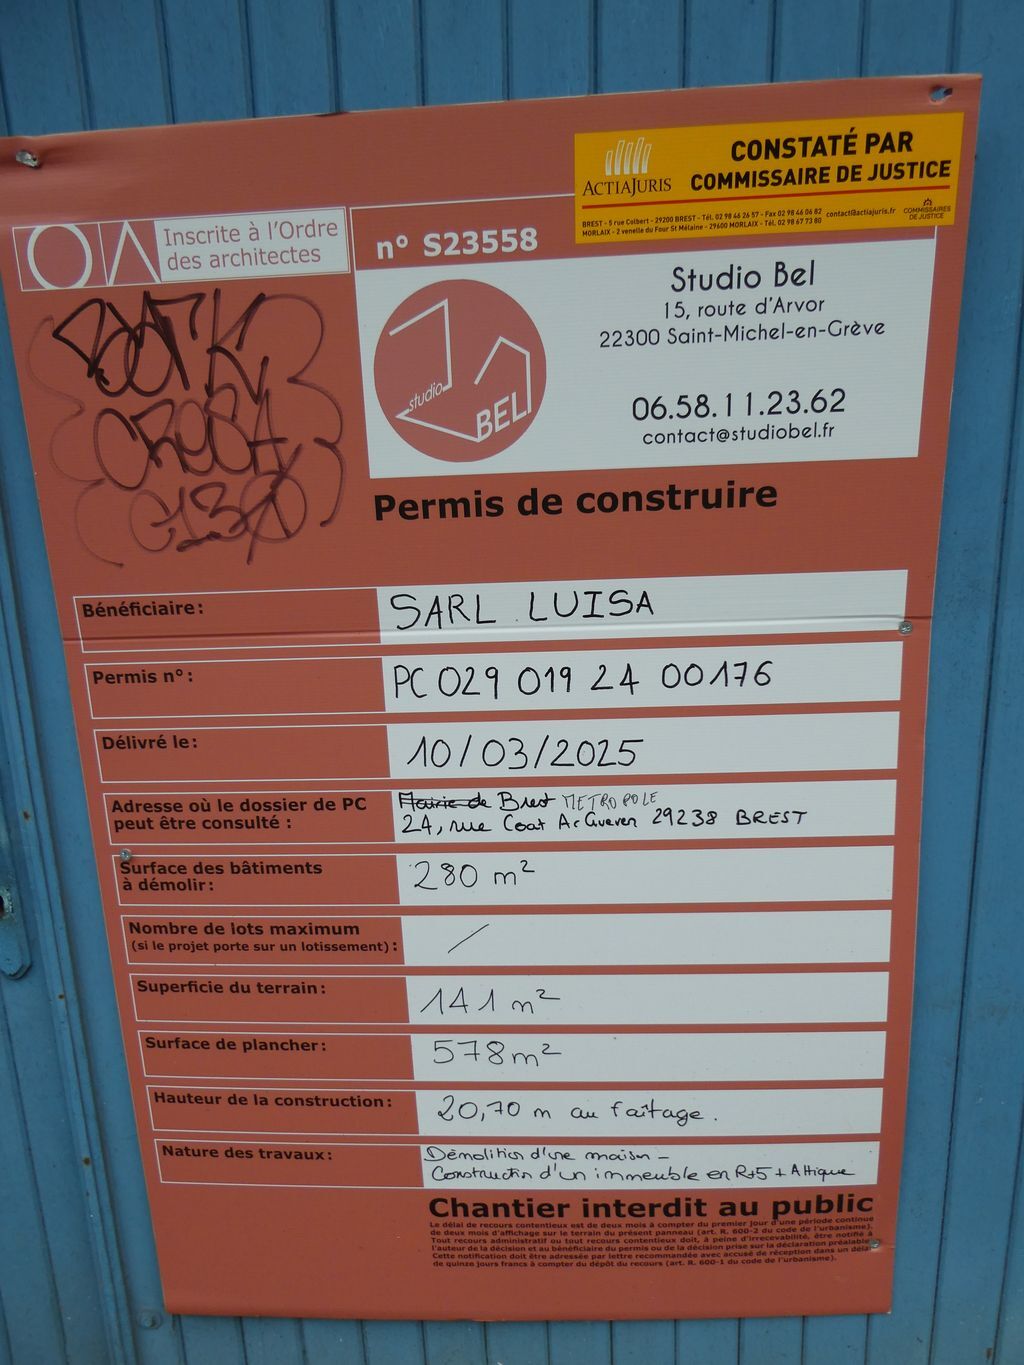 CONSTATÉ PAR
COMMISSAIRE DE JUSTICE
ACTIAJURIS
BREST - 5 rue Colbert - 29200 BREST - Tél. 02 98 46 26 57 - Fax 02 98 46 06 82 contact@actiajuris.fr
MORLAIX - 2 venelle du Four St Mélaine - 29600 MORLAIX - Tél. 02 98 67 73 80
COMMISSAIRES
DE JUSTICE
Inscrite à l'Ordre
des architectes
n° S23558
Studio Bel
15, route d'Arvor
22300 Saint-Michel-en-Grève
06.58.11.23.62
contact@studiobel.fr
studio
BEL
Permis de construire
Bénéficiaire: SARL LUISA
Permis n°: PC 029 019 24 00176
Délivré le: 10/03/2025
Adresse où le dossier de PC
peut être consulté :
Mairie de Brest METROPOLE
24, rue Coat Ar Gueven 29238 BREST
Surface des bâtiments
à démolir: 280 m²
Nombre de lots maximum
(si le projet porte sur un lotissement) : /
Superficie du terrain: 141 m²
Surface de plancher: 578 m²
Hauteur de la construction: 20,70 m au faîtage.
Nature des travaux: Démolition d'une maison -
Construction d'un immeuble en R+5 + Attique
Chantier interdit au public
Le délai de recours contentieux est de deux mois à compter du premier jour d'une période continue
de deux mois d'affichage sur le terrain du présent panneau (art. R. 600-2 du code de l'urbanisme).
Tout recours administratif ou tout recours contentieux doit, à peine d'irrecevabilité, être notifié à
l'auteur de la décision et au bénéficiaire du permis ou de la décision prise sur la déclaration préalable.
Cette notification doit être adressée par lettre recommandée avec accusé de réception dans un délai
de quinze jours francs à compter du dépôt du recours (art. R. 600-1 du code de l'urbanisme).